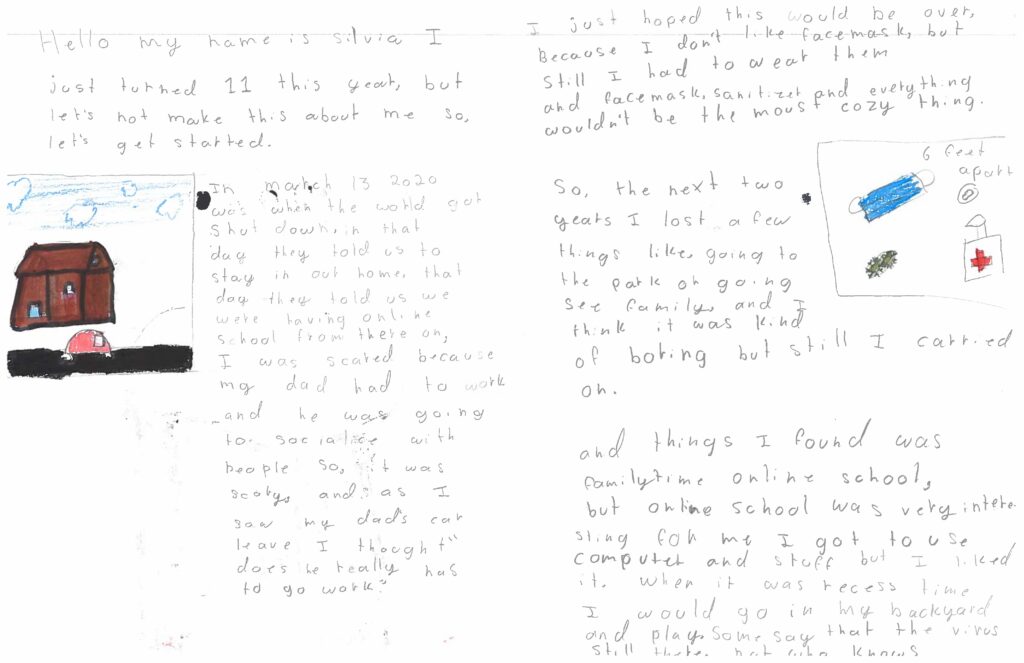 Hello my name is silvia I
just turned 11 this year, but
let's not make this about me so,
let's get started.
In march 13 2020
was when the world got
shut down, in that
day they told us to
stay in our home, that
day they told us we
were having online
school from there on,
I was scared because
my dad had to work
and he was going
to socialice with
people so, it was
scary, and as I
saw my dad's car
leave I thought "
does he really has
to go work."
I just hoped this would be over,
Because I don't like facemask, but
still I had to wear them
and facemask, sanitizer and everything
wouldn't be the moust cozy thing.
6 feet
apart
So, the next two
years I lost a few
things like, going to
the park or going
see family, and I
think it was kind
of boring but still I carried
on.
and things I found was
familytime online school,
but online school was very intere-
sting for me I got to use
computer and stuff but I liked
it. when it was recess time
I would go in my backyard
and play. some say that the virus
still there, but who knows